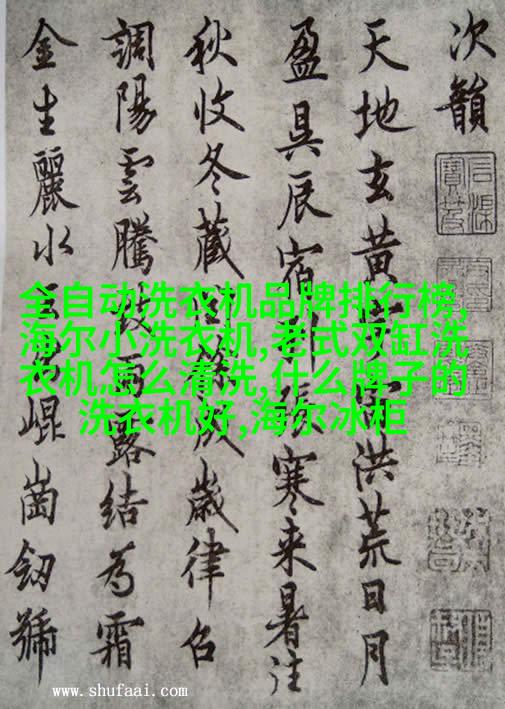 次韻
天地玄黄宇宙洪荒日月
盈昃辰宿列張寒来暑往
秋收冬藏閏餘成歲律召
調陽雲騰致雨露結為霜
金生麗水玉出崐崗劒號
全自动洗衣机品牌排行榜,
海尔小洗衣机,老式双缸洗
衣机怎么清洗,什么牌子的
洗衣机好,海尔冰柜
www.shufaai.com